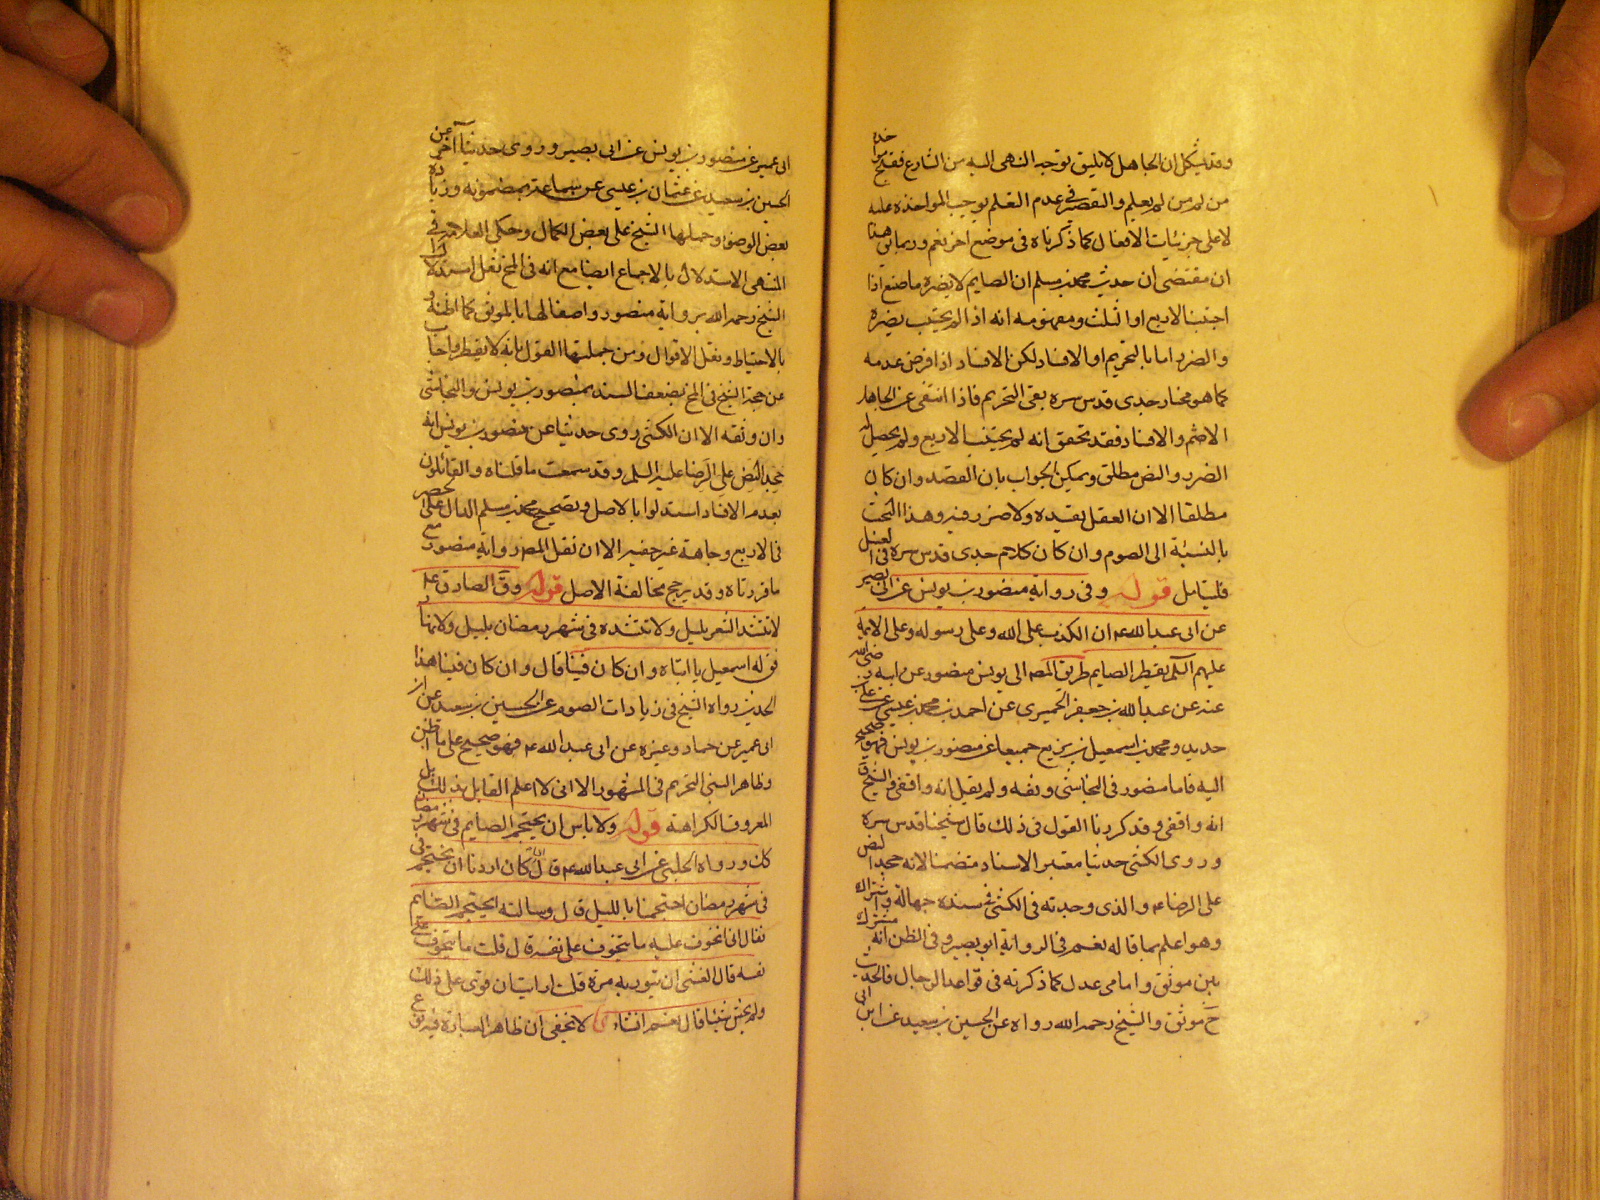 وقد يشكل ان الجاهل لا يليق توجه النهى اليه من الشارع فقد
من لم يعلم والتقصير فى عدم التعلم يوجب المواخذة عليه
لا على جزئيات الافعال كما ذكرناه فى موضع اخر نعم وربما
ان مقتضى ان حديث محمد بن مسلم ان الصايم لا يضره ما صنع اذا
اجتنب الاربع او الثلث ومفهومه انه اذا لم يجتنب يضره
والضرر اما بالتحريم او الافساد لكن الافساد اذا فرض عدمه
كما هو مختار جدى قدس سره بقى التحريم فاذا انتفى عن الجاهل
الاثم والافساد فقد تحقق انه لم يجتنب الاربع ولم يحصل له
الضرر والنص مطلق ويمكن الجواب بان القصد وان كان
مطلقا الا ان العقل يقيده ولا ضرر فيه وهذا البحث
بالنسبة الى الصوم وان كان كلام جدى قدس سره فى الغسل
فليتامل قوله وفى رواية منصور بن يونس عن ابى بصير
عن ابى عبد الله ع ان الكذب على الله وعلى رسوله وعلى الائمة
عليهم السلم يفطر الصايم طريق المص الى يونس منصور عن ابيه رضى الله
عنه عن عبد الله بن جعفر الحميرى عن احمد بن محمد بن عيسى عن على بن
حديد ومحمد بن اسمعيل بن بزيع جميعا عن منصور بن يونس فهو صحيح
اليه فاما منصور فى النجاشى وثقه ولم يقل انه واقفى والشيخ قال
انه واقفى وقد كررنا القول فى ذلك قال شيخنا قدس سره
وروى الكشى حديثا معتبر الاسناد متضمنا لانه جحد النص
على الرضا ع والذى وجدته فى الكشى فى سنده جهالة واشتراك
وهو اعلم بما قاله نعم فى الرواية ابو بصير وفى الظن انه مشترك
بين موثق وامامى عدل كما ذكرته فى قواعد الرجال فالحديث
ح موثق والشيخ رحمه الله رواه عن الحسين بن سعيد عن ابن ابى
ابى عمير عن منصور بن يونس عن ابى بصير وروى حديثا آخر عن
الحسين بن سعيد عن عثمان بن عيسى عن سماعة بمضمونه وزيادة
بعض الوضوء وحملها الشيخ على بعض الكمال وحكى العلامة فى
المنتهى الاستدلال بالاجماع ايضا مع انه فى المخ نقل استدلال
الشيخ رحمه الله برواية منصور واصفا لها بالموثق كما اظنه و
بالاحتياط ونقل الاقوال ومن جملتها القول بانه لا يفطر واجاب
عن حجة الشيخ فى المخ بضعف السند بمنصور بن يونس والنجاشى
وان وثقه الا ان الكشى روى حديثا عن منصور بن يونس انه
جحد النص على الرضا عليه السلم وقد سمعت ما قلناه والقائلون
بعدم الافساد استدلوا بالاصل وبصحيح محمد بن مسلم الدال على حصر
فى الاربع وجاهة غير خفير الا ان نقل المص رواية منصور مع
ما قررناه وقد يرجح مخالفة الاصل قوله وق الصادق ع
لا تنشد الشعر بليل ولا تنشده فى شهر رمضان بليل ولا نهار
فق له اسمعيل يا ابتاه وان كان فينا قال وان كان فينا هذا
الحديث رواه الشيخ فى زيادات الصوم عن الحسين بن سعيد عن ابن
ابى عمير عن حماد وغيره عن ابى عبد الله ع فهو صحيح على ما اظن
وظاهر النهى التحريم فى المشهور الا انى لا اعلم القايل بذلك بل
المعروف الكراهة قوله ولا باس ان يحتجم الصايم فى شهر رمضان
كان ورواه الحلبى عن ابى عبد الله ع قال كان اذا اردنا ان نحتجم
فى شهر رمضان احتجمنا بالليل قال وسالته ايحتجم الصايم
فقال انى اتخوف عليه ما يتخوف على نفسه قال قلت ما يتخوف على
نفسه قال الغشى ان تثور به مرة قلت ارايت ان قوى على ذلك
ولم يخش شيئا قال نعم ان شاء لا يخفى ان ظاهر العبارة